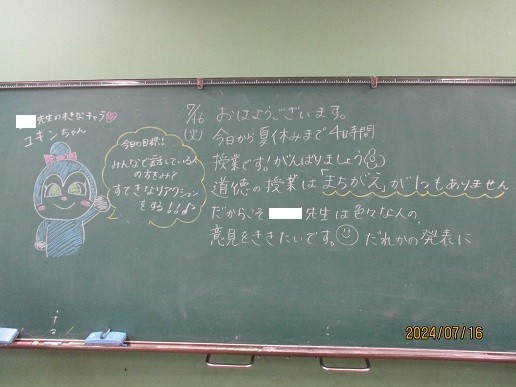 先生の大きなキャラ♡
コキンちゃん
今日の目標!!
みんなで話している人
の方をみて
すてきなリアクション
をする!!♪
7/16 おはようございます。
(火) 今日から夏休みまで4時間
授業です!がんばりましょう
道徳の授業は「まちがえ」が1つもありません
だからこそ 先生は色々な人の、
意見をききたいです。☺ だれかの発表に
2024/07/16